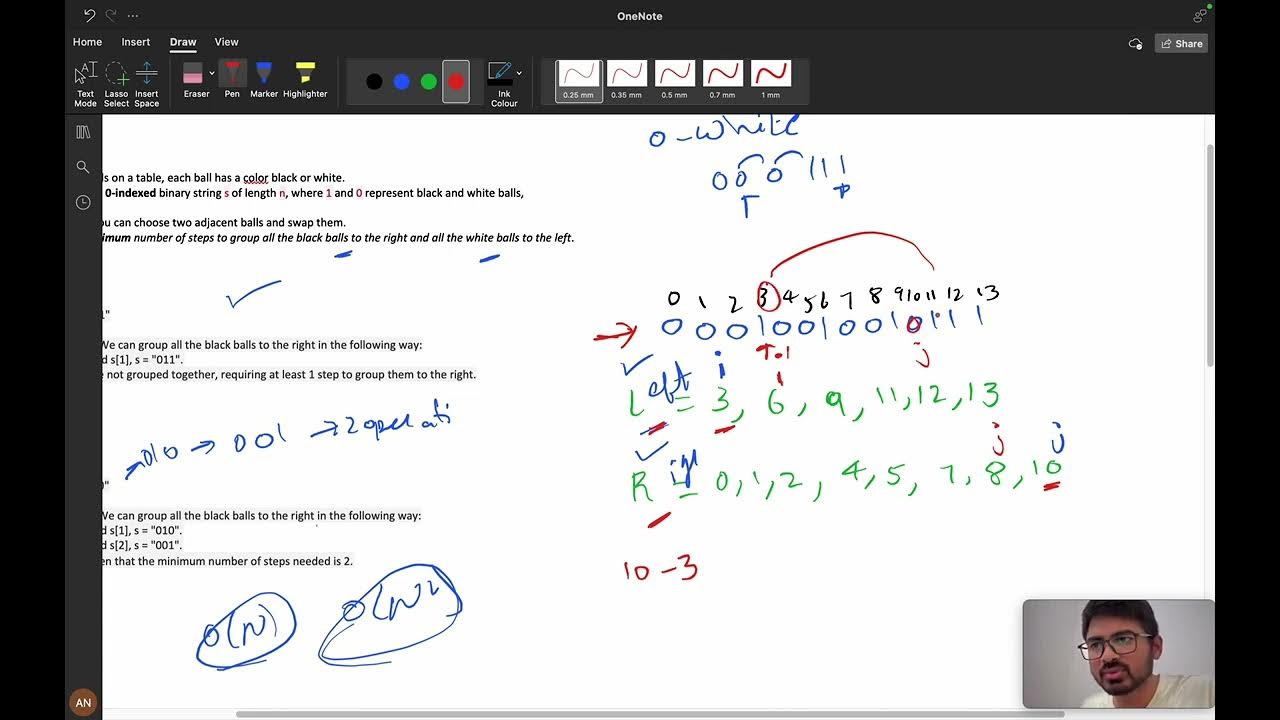 OneNote
Home Insert Draw View
Share
Text Mode
Lasso Select
Insert Space
Eraser
Pen
Marker
Highlighter
Ink Colour
0.25 mm
0.35 mm
0.5 mm
0.7 mm
1 mm
ls on a table, each ball has a color black or white.
0-indexed binary string s of length n, where 1 and 0 represent black and white balls,
ou can choose two adjacent balls and swap them.
imum number of steps to group all the black balls to the right and all the white balls to the left.
1"
We can group all the black balls to the right in the following way:
d s[1], s = "011".
not grouped together, requiring at least 1 step to group them to the right.
010 → 001 → 2 operati
0"
We can group all the black balls to the right in the following way:
d s[1], s = "010".
d s[2], s = "001".
en that the minimum number of steps needed is 2.
O(N) O(N²
0 - white
0 0 0 1 1 1
0 1 2 3 4 5 6 7 8 9 10 11 12 13
0 0 0 1 0 0 1 0 0 1 0 1 1 1
i j
Left = 3, 6, 9, 11, 12, 13
j j
Rig = 0, 1, 2, 4, 5, 7, 8, 10
10 - 3
AN